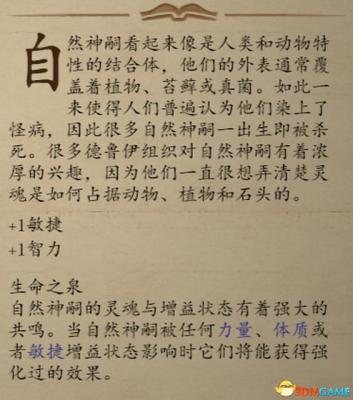 自然神嗣看起来像是人类和动物特
性的结合体，他们的外表通常覆
盖着植物、苔藓或真菌。如此一
来使得人们普遍认为他们染上了
怪病，因此很多自然神嗣一出生即被杀
死。很多德鲁伊组织对自然神嗣有着浓
厚的兴趣，因为他们一直很想弄清楚灵
魂是如何占据动物、植物和石头的。
+1敏捷
+1智力
生命之泉
自然神嗣的灵魂与增益状态有着强大的
共鸣。当自然神嗣被任何力量、体质或
者敏捷增益状态影响时它们将能获得强
化过的效果。
3DMGAME